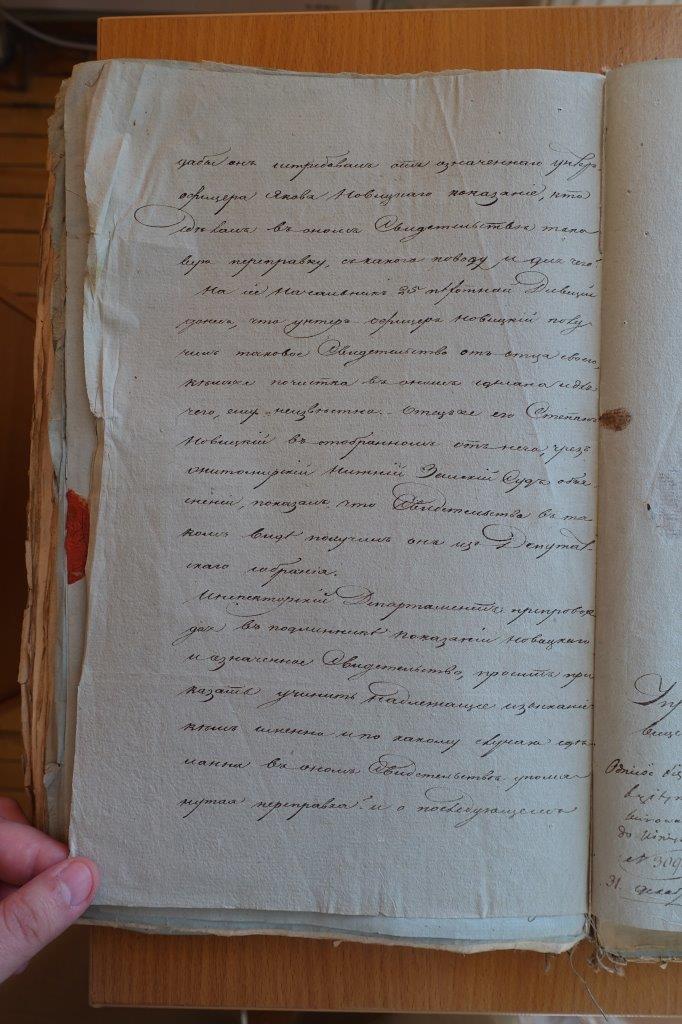 дабы онъ истребовалъ отъ означеннаго унтеръ
офицера Якова Новицкаго показаніе, кто
сдѣлалъ въ ономъ Свидетельствѣ тако
вую переправку, съ какого поводу и для чего?
На сіе Начальникъ 25 пѣхотной Дивизіи
донесъ, что унтеръ офицеръ Новицкій полу
чилъ таковое Свидетельство отъ отца своего,
кѣмъ же почистка въ ономъ сделана и для
чего, ему неизвѣстно. Отецъ же его Степанъ
Новицкій въ отобранномъ отъ него, чрезъ
Житомирскій Нижній Земскій Судъ объя
сненіи, показалъ что Свидетельства въ та
комъ видѣ получилъ онъ изъ Депутат
скаго собранія.
Инспекторскій Департаментъ препровож
дая въ подлинникѣ показаніи Новицкаго
и означенное Свидетельство, проситъ при
казать учинить надлежащее изысканіе
кѣмъ именно и по какому случаю сдѣ
ланна въ ономъ Свидетельствѣ упомя
нутая переправка? и о послѣдующемъ
до
№ 309
31. декаб